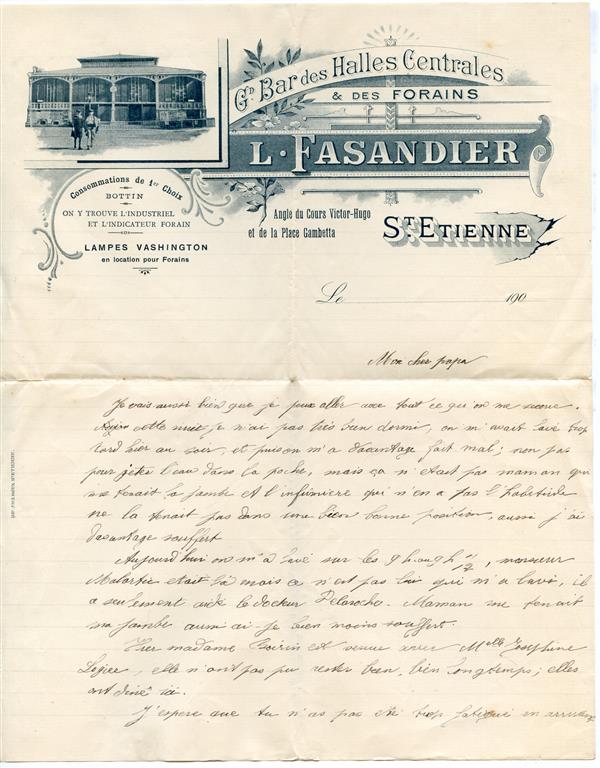 Gd Bar des Halles Centrales
& DES FORAINS
L. FASANDIER
Consommations de 1er Choix
BOTTIN
ON Y TROUVE L'INDUSTRIEL
ET L'INDICATEUR FORAIN
LAMPES VASHINGTON
en location pour Forains
Angle du Cours Victor-Hugo
et de la Place Gambetta
ST. ETIENNE
Le 190
Mon cher papa
Je vais aussi bien que je peux aller avec tout ce qu'on me secoue.
cette nuit je n'ai pas très bien dormi, on m'avait lavé trop
tard hier au soir, et puis on m'a davantage fait mal; non pas
pour jeter l'eau dans la poche, mais ça n'était pas maman qui
me tenait la jambe et l'infirmière qui n'en a pas l'habitude
ne la tenait pas dans une bien bonne position, aussi j'ai
davantage souffert
Aujourd'hui on m'a lavé sur les 9h ou 9h 1/2, monsieur
Malartic était là mais ce n'est pas lui qui m'a lavé, il
a seulement aidé le docteur Delaroche. Maman me tenait
ma jambe aussi ai-je bien moins souffert.
Hier madame est venue avec Melle Joséphine
Logier, elle n'ont pas pu rester bien, bien longtemps; elles
ont diné ici.
J'espère que tu n'as pas été trop fatigué en